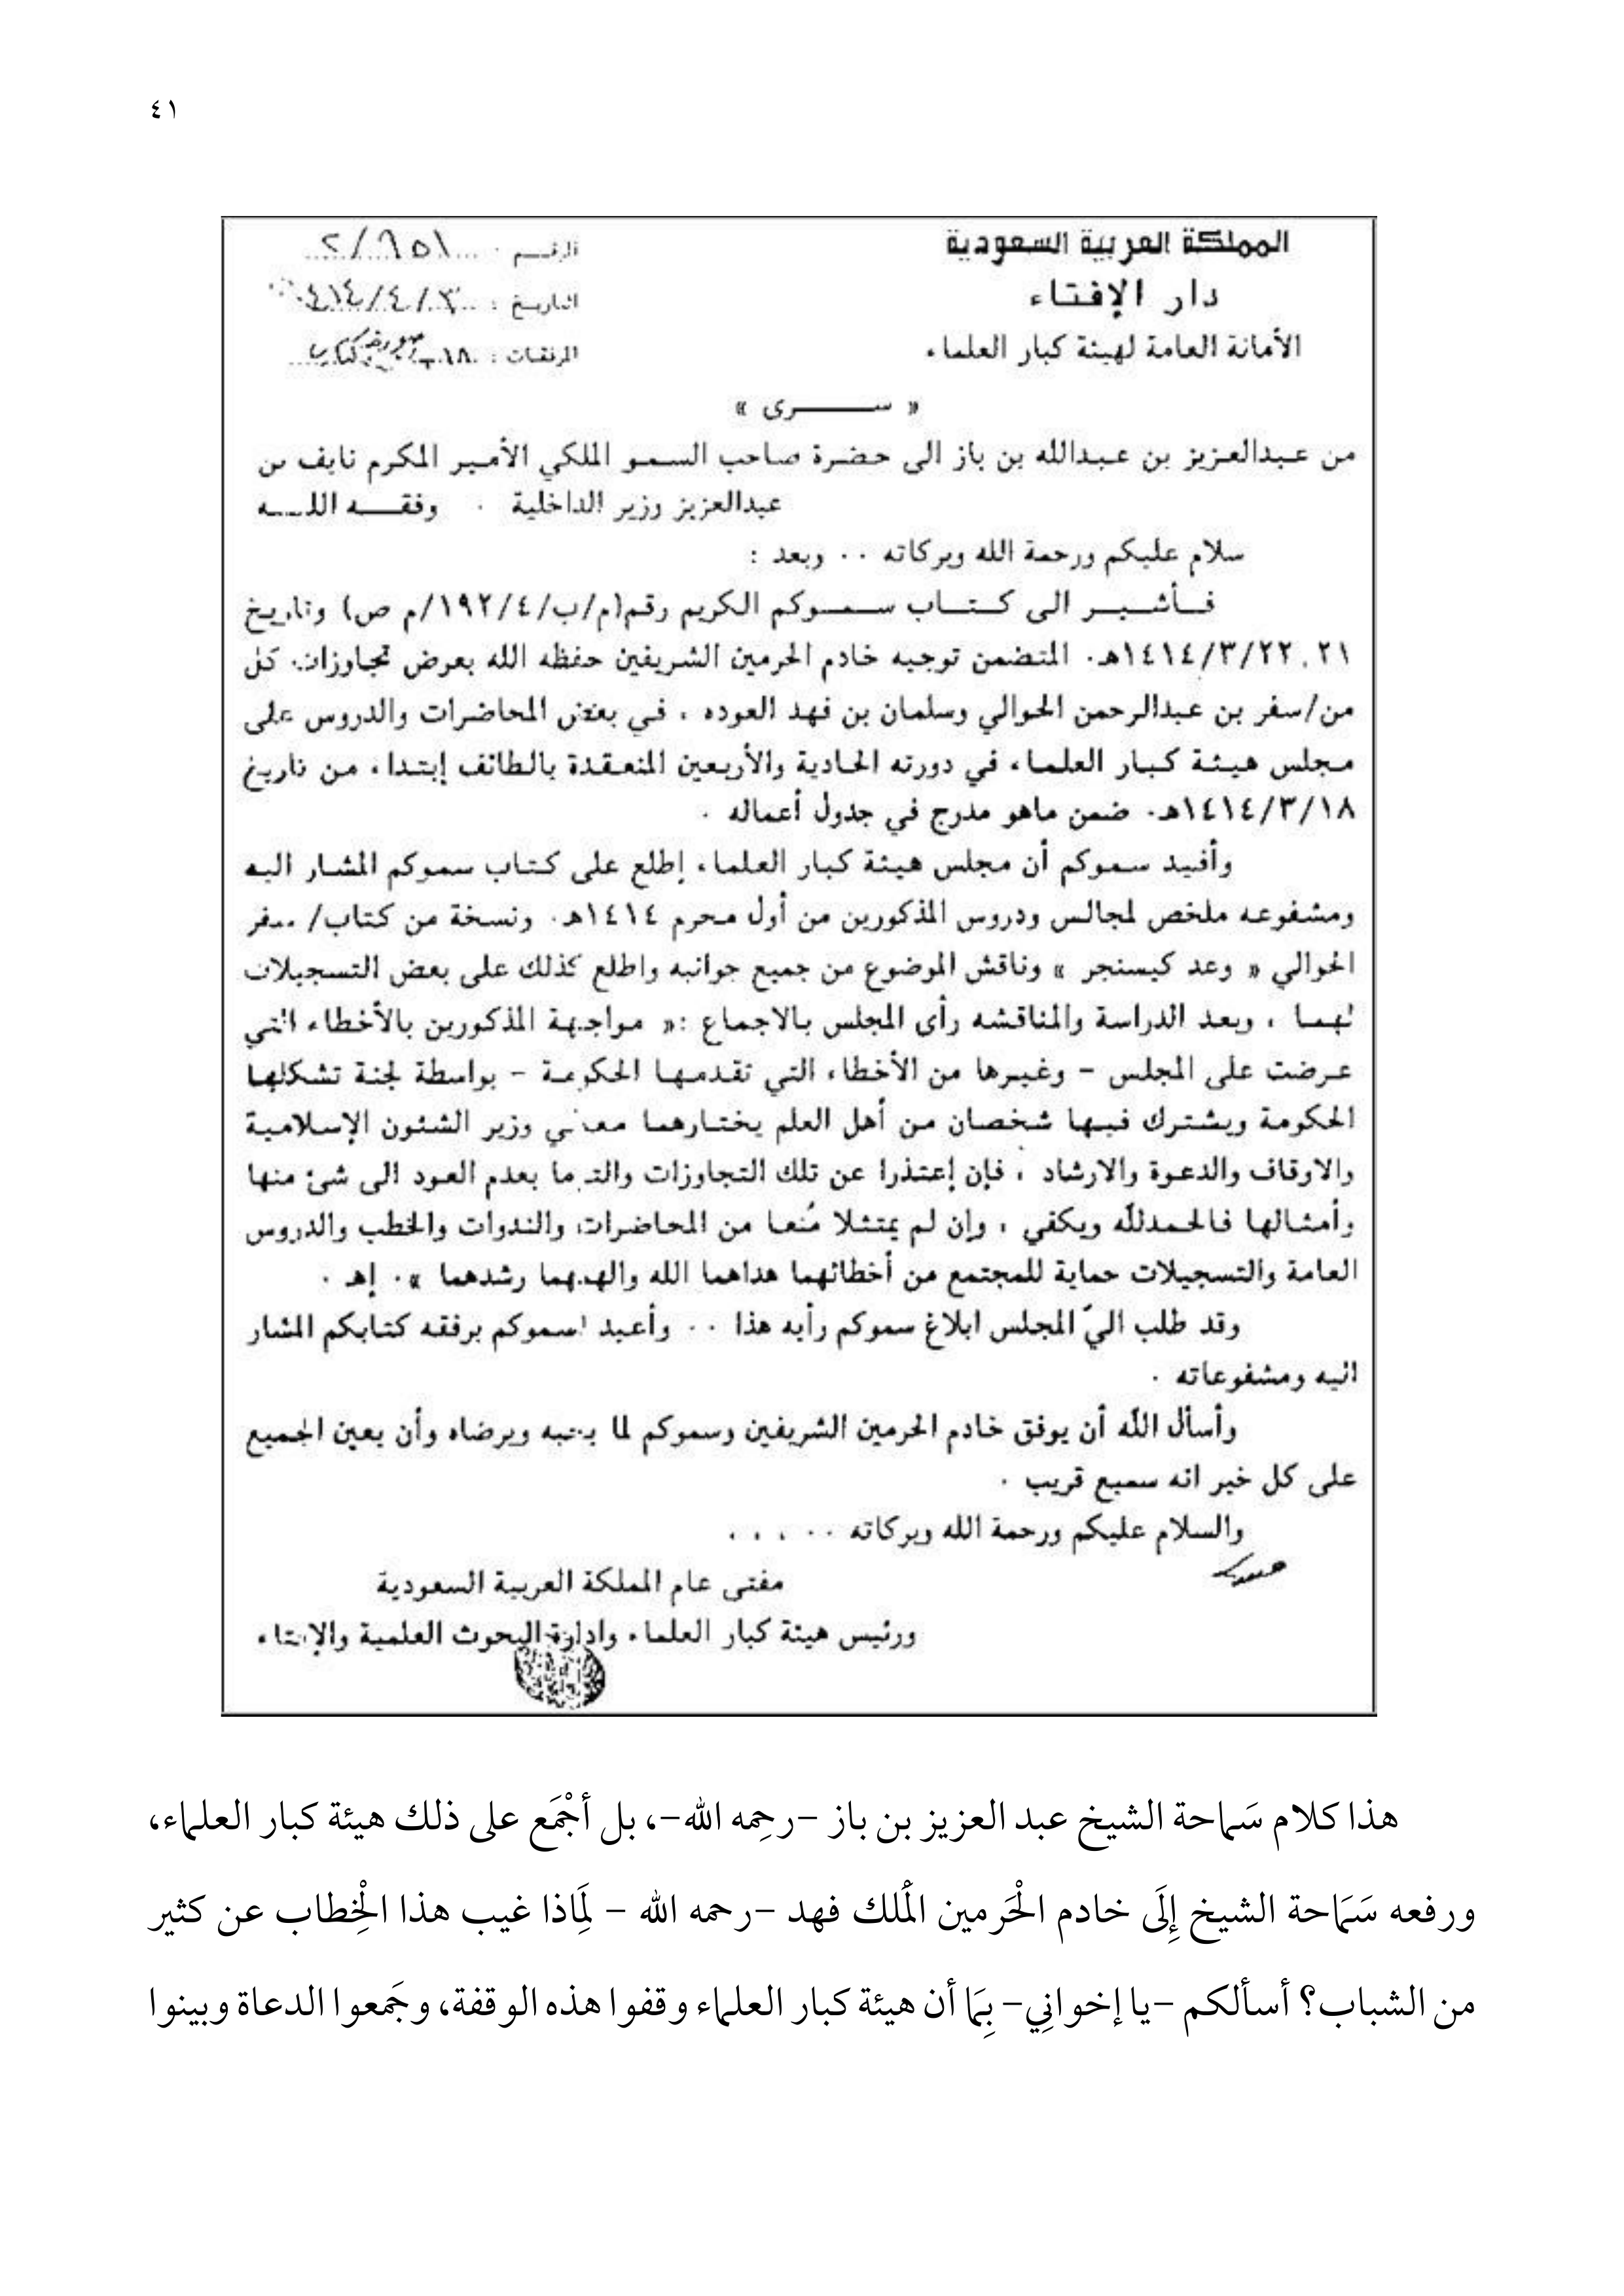 ٤١
المملكة العربية السعودية
دار الإفتاء
الأمانة العامة لهيئة كبار العلماء
الرقم : ٢/٩٥١
التاريخ :
المرفقات :
« سـرى »
من عبدالعزيز بن عبدالله بن باز الى حضرة صاحب السمو الملكي الأمير المكرم نايف بن
عبدالعزيز وزير الداخلية . وفقه الله
سلام عليكم ورحمة الله وبركاته .. وبعد :
فأشير الى كتاب سموكم الكريم رقم(م/ب/١٩٢/٤/م ص) وتاريخ
٢١، ١٤١٤/٣/٢٢هـ. المتضمن توجيه خادم الحرمين الشريفين حفظه الله بعرض تجاوزات كل
من/سفر بن عبدالرحمن الحوالي وسلمان بن فهد العوده ، في بعض المحاضرات والدروس على
مجلس هيئة كبار العلماء، في دورته الحادية والأربعين المنعقدة بالطائف إبتداء، من تاريخ
١٤١٤/٣/١٨هـ. ضمن ماهو مدرج في جدول أعماله .
وأفيد سموكم أن مجلس هيئة كبار العلماء، إطلع على كتاب سموكم المشار اليه
ومشفوعه ملخص لمجالس ودروس المذكورين من أول محرم ١٤١٤هـ. ونسخة من كتاب/ سفر
الحوالي « وعد كيسنجر » وناقش الموضوع من جميع جوانبه واطلع كذلك على بعض التسجيلات
لهما ، وبعد الدراسة والمناقشه رأى المجلس بالاجماع :« مواجهة المذكورين بالأخطاء التي
عرضت على المجلس - وغيرها من الأخطاء التي تقدمها الحكومة - بواسطة لجنة تشكلها
الحكومة ويشترك فيها شخصان من أهل العلم يختارهما معالي وزير الشئون الإسلامية
والاوقاف والدعوة والارشاد ، فإن إعتذرا عن تلك التجاوزات والتزما بعدم العود الى شئ منها
وأمثالها فالحمدلله ويكفي ، وإن لم يمتثلا مُنعا من المحاضرات والندوات والخطب والدروس
العامة والتسجيلات حماية للمجتمع من أخطائهما هداهما الله والهمهما رشدهما ». إهـ .
وقد طلب اليّ المجلس ابلاغ سموكم رأيه هذا .. وأعيد لسموكم برفقه كتابكم المشار
اليه ومشفوعاته .
وأسأل الله أن يوفق خادم الحرمين الشريفين وسموكم لما يحبه ويرضاه وأن يعين الجميع
على كل خير انه سميع قريب .
والسلام عليكم ورحمة الله وبركاته .. . . .
مفتى عام المملكة العربية السعودية
ورئيس هيئة كبار العلماء وادارة البحوث العلمية والإفتاء
هذا كلام سَماحة الشيخ عبد العزيز بن باز -رحِمه الله-، بل أجْمَع على ذلك هيئة كبار العلماء،
ورفعه سَمَاحة الشيخ إِلَى خادم الْحَرمين الْملك فهد -رحمه الله - لِمَاذا غيب هذا الْخِطاب عن كثير
من الشباب؟ أسألكم -يا إخوانِي- بِمَا أن هيئة كبار العلماء وقفوا هذه الوقفة، وجَمعوا الدعاة وبينوا